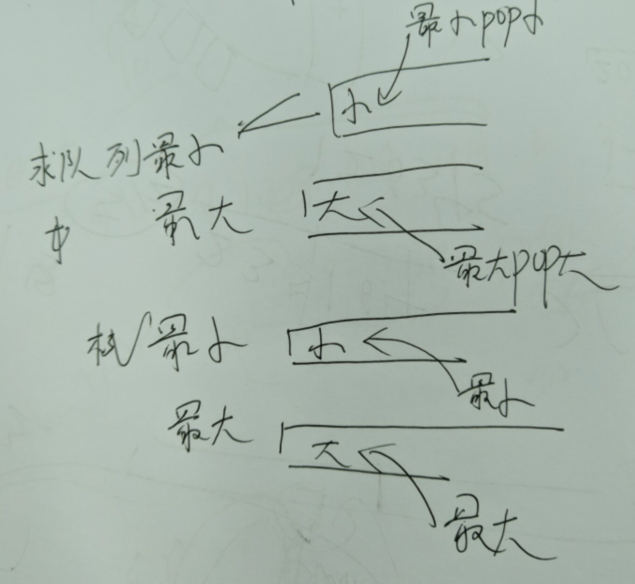 最小pop小
小
求队列最小
中 最大 大
最大pop大
栈 最小 小
最小
最大 大
最大